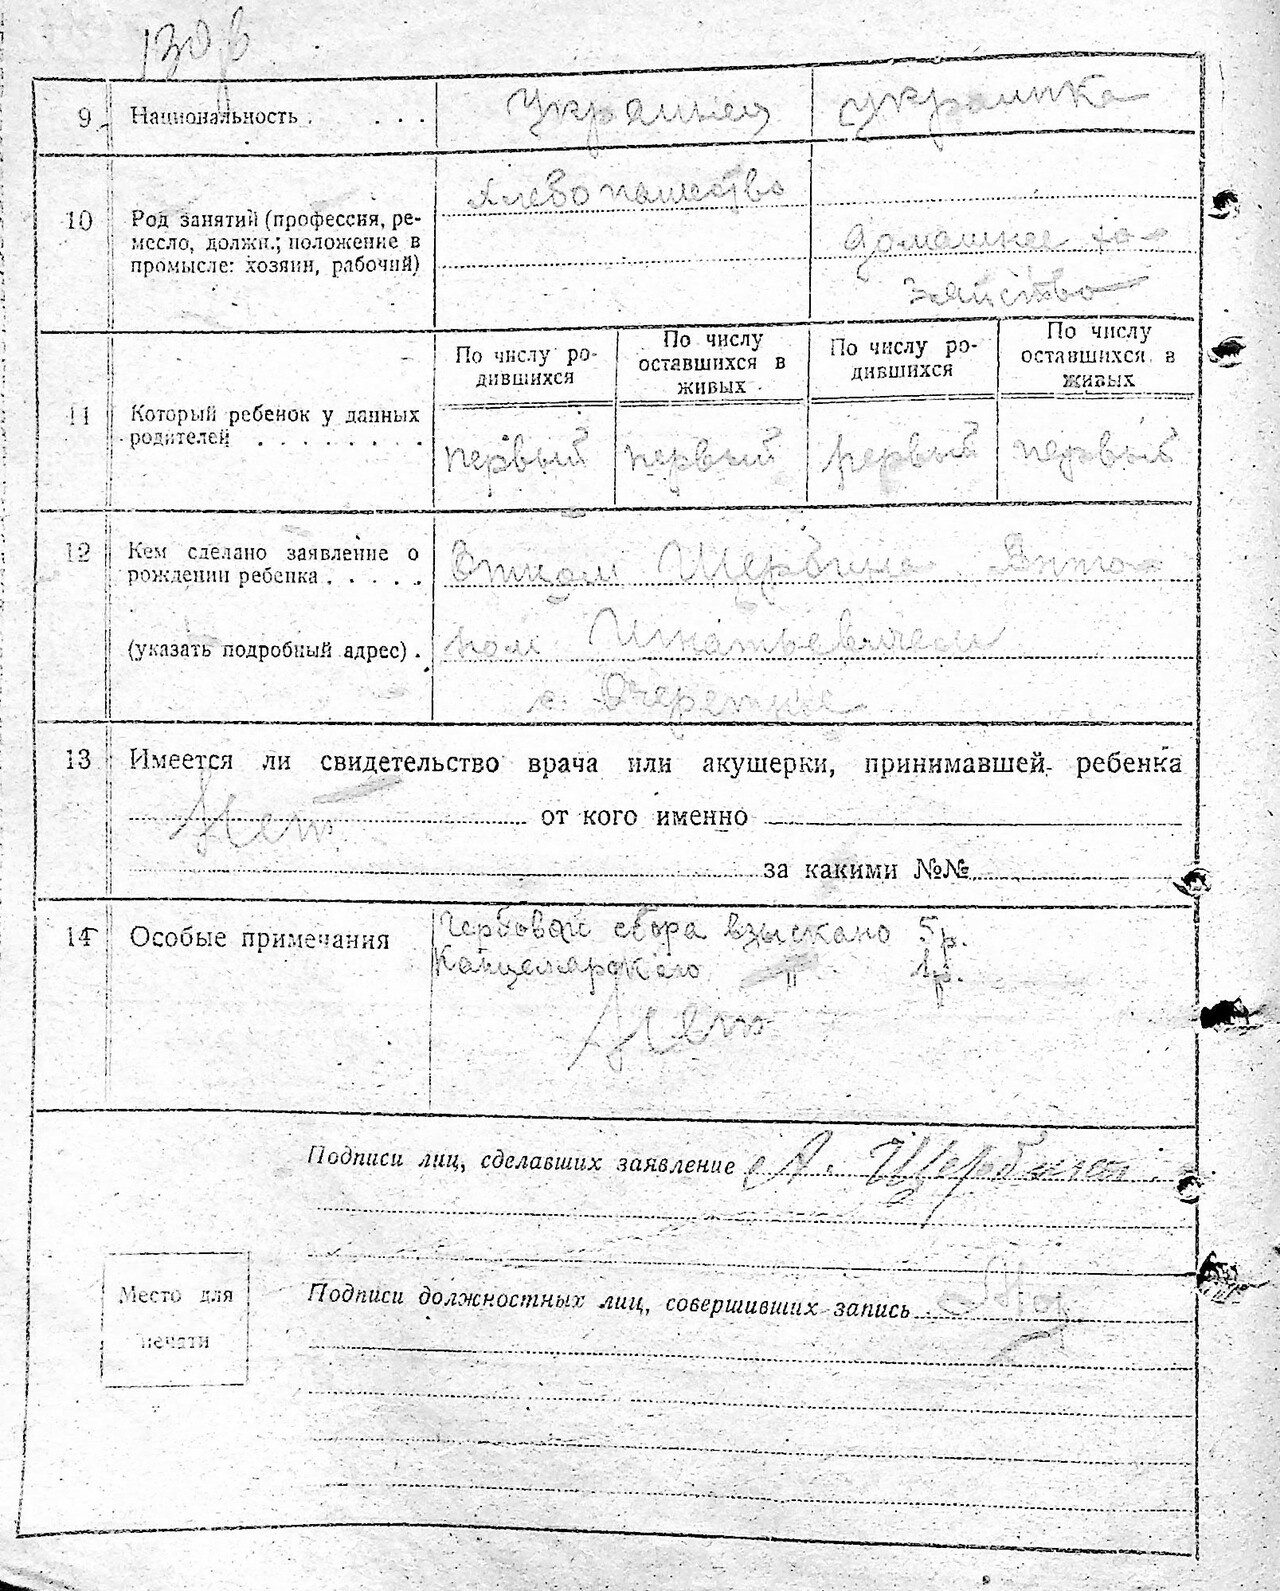 130 в
9 Национальность . . . . Украинец украинка
10 Род занятий (профессия, ре-
месло, должн.; положение в
промысле: хозяин, рабочий)
Хлебопашество
домашнее хо-
зяйство
По числу ро-
дившихся
По числу
оставшихся в
живых
По числу ро-
дившихся
По числу
оставшихся в
живых
11 Который ребенок у данных
родителей . . . . . . . .
первый первый первый первый
12 Кем сделано заявление о
рождении ребенка . . . . .
(указать подробный адрес) .
Отцом Щербина Анто-
ном Игнатьевичем
с. Очеретное
13 Имеется ли свидетельство врача или акушерки, принимавшей ребенка
Нет от кого именно
за какими №№
14 Особые примечания
Гербовой сбора взыскано 5 р.
Канцелярского " 1 р.
Нет
Подписи лиц, сделавших заявление А. Щербина
Место для
печати
Подписи должностных лиц, совершивших запись